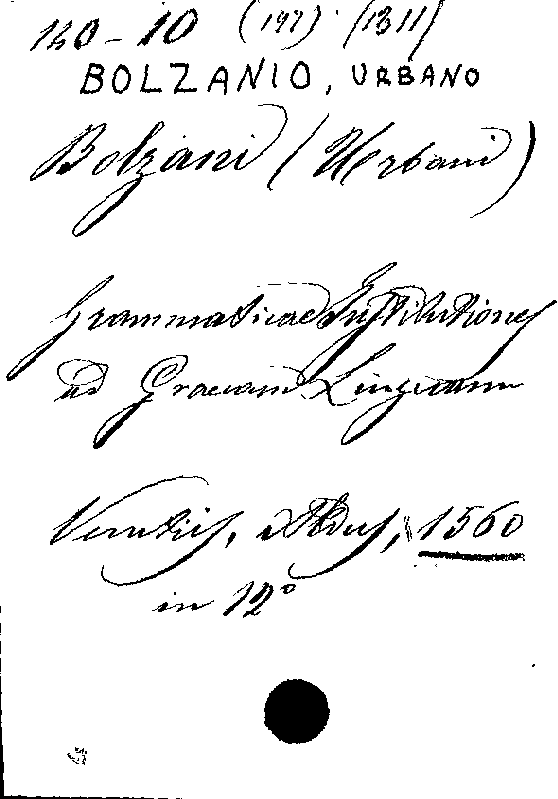 140-10 (197) (1311)
BOLZANIO, URBANO
Bolzani (Urbani)
Grammaticae Institutiones
ad Graecam Linguam
Venetiis, Aldus, 1560
in 12°